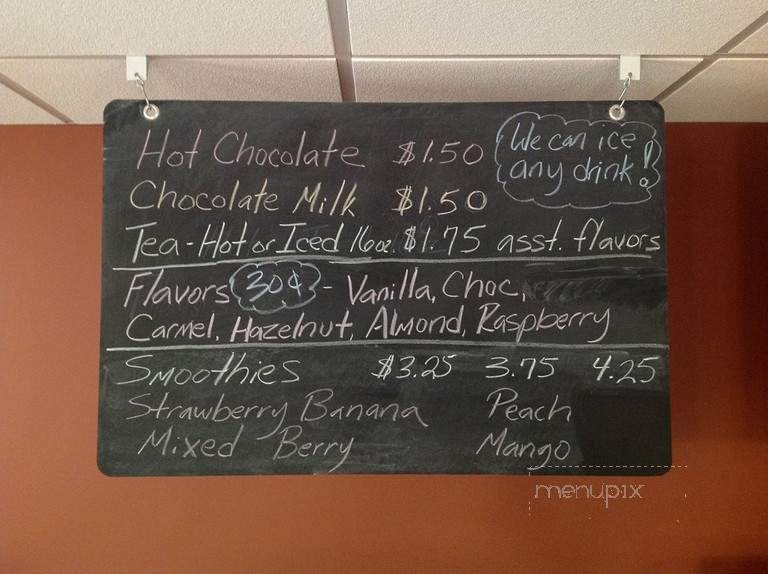 Hot Chocolate $1.50
We can ice
any drink!
Chocolate Milk $1.50
Tea-Hot or Iced 16oz. $1.75 asst. flavors
Flavors 30¢ - Vanilla, Choc,
Carmel, Hazelnut, Almond, Raspberry
Smoothies $3.25 3.75 4.25
Strawberry Banana Peach
Mixed Berry Mango
menupix